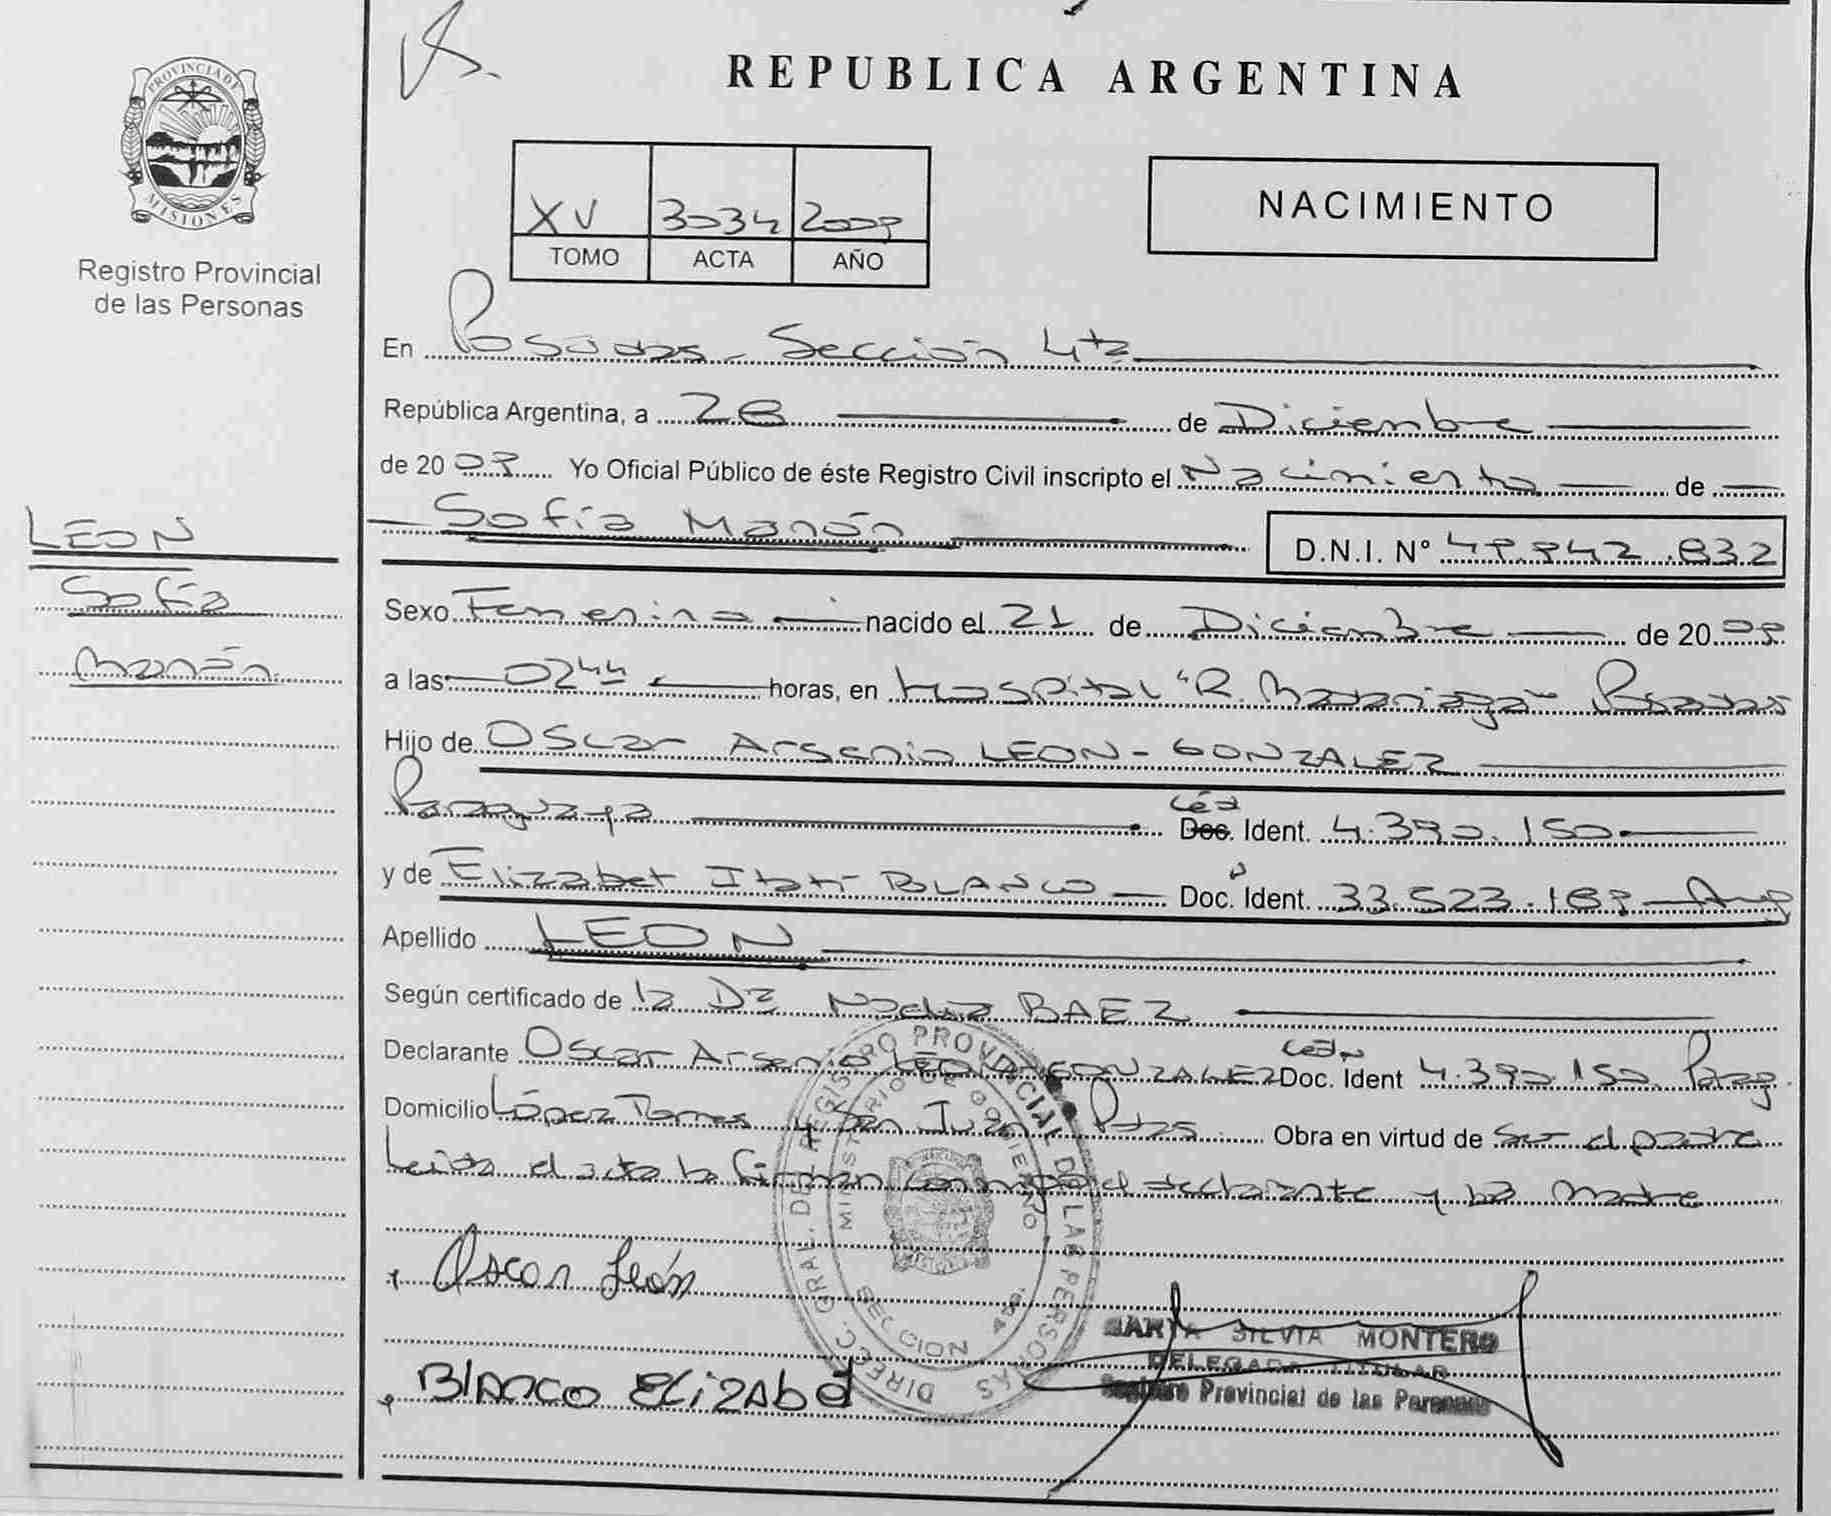 REPUBLICA ARGENTINA
PROVINCIA DE
MISIONES
Registro Provincial
de las Personas
XV 3034 2009
TOMO ACTA AÑO
NACIMIENTO
En Posadas - Sección 4ta
República Argentina, a 28 de Diciembre
de 2009 Yo Oficial Público de éste Registro Civil inscripto el Nacimiento de
Sofía
D.N.I. Nº 49.942.832
LEON
Sofía
Sexo Femenino nacido el 21 de Diciembre de 2009
a las 02 44 horas, en Hospital "R. Madariaga" Posadas
Hijo de Oscar Arsenio LEON - GONZALEZ
Paraguaya Céd Doc. Ident. 4.390.150
y de Elizabet Itatí BLANCO Doc. Ident. 33.523.189 Arg
Apellido LEON
Según certificado de la Dra BAEZ
Declarante Oscar Arsenio LEON GONZALEZ Doc. Ident 4.390.150 Parag.
Domicilio López Torres y San Juan Pdas Obra en virtud de ser el padre
Leída el acta la firman conmigo el declarante y la madre
Oscar León
Blanco Elizabet
DIRECC. GRAL. DE REGISTRO PROVINCIAL DE LAS PERSONAS
MINISTERIO DE GOBIERNO
SECCION 4ta.
SILVIA MONTERO
DELEGADA TITULAR
Registro Provincial de las Personas